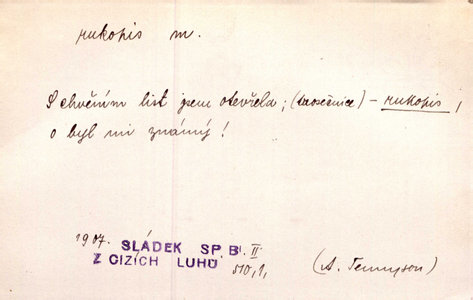 rukopis m.
S chvěním list jsem otevřela; (trosečnice) – rukopis,
o byl mi známý!
1907. SLÁDEK SP. B. II
Z CIZÍCH LUHŮ 510,1,
(A. Tennyson)